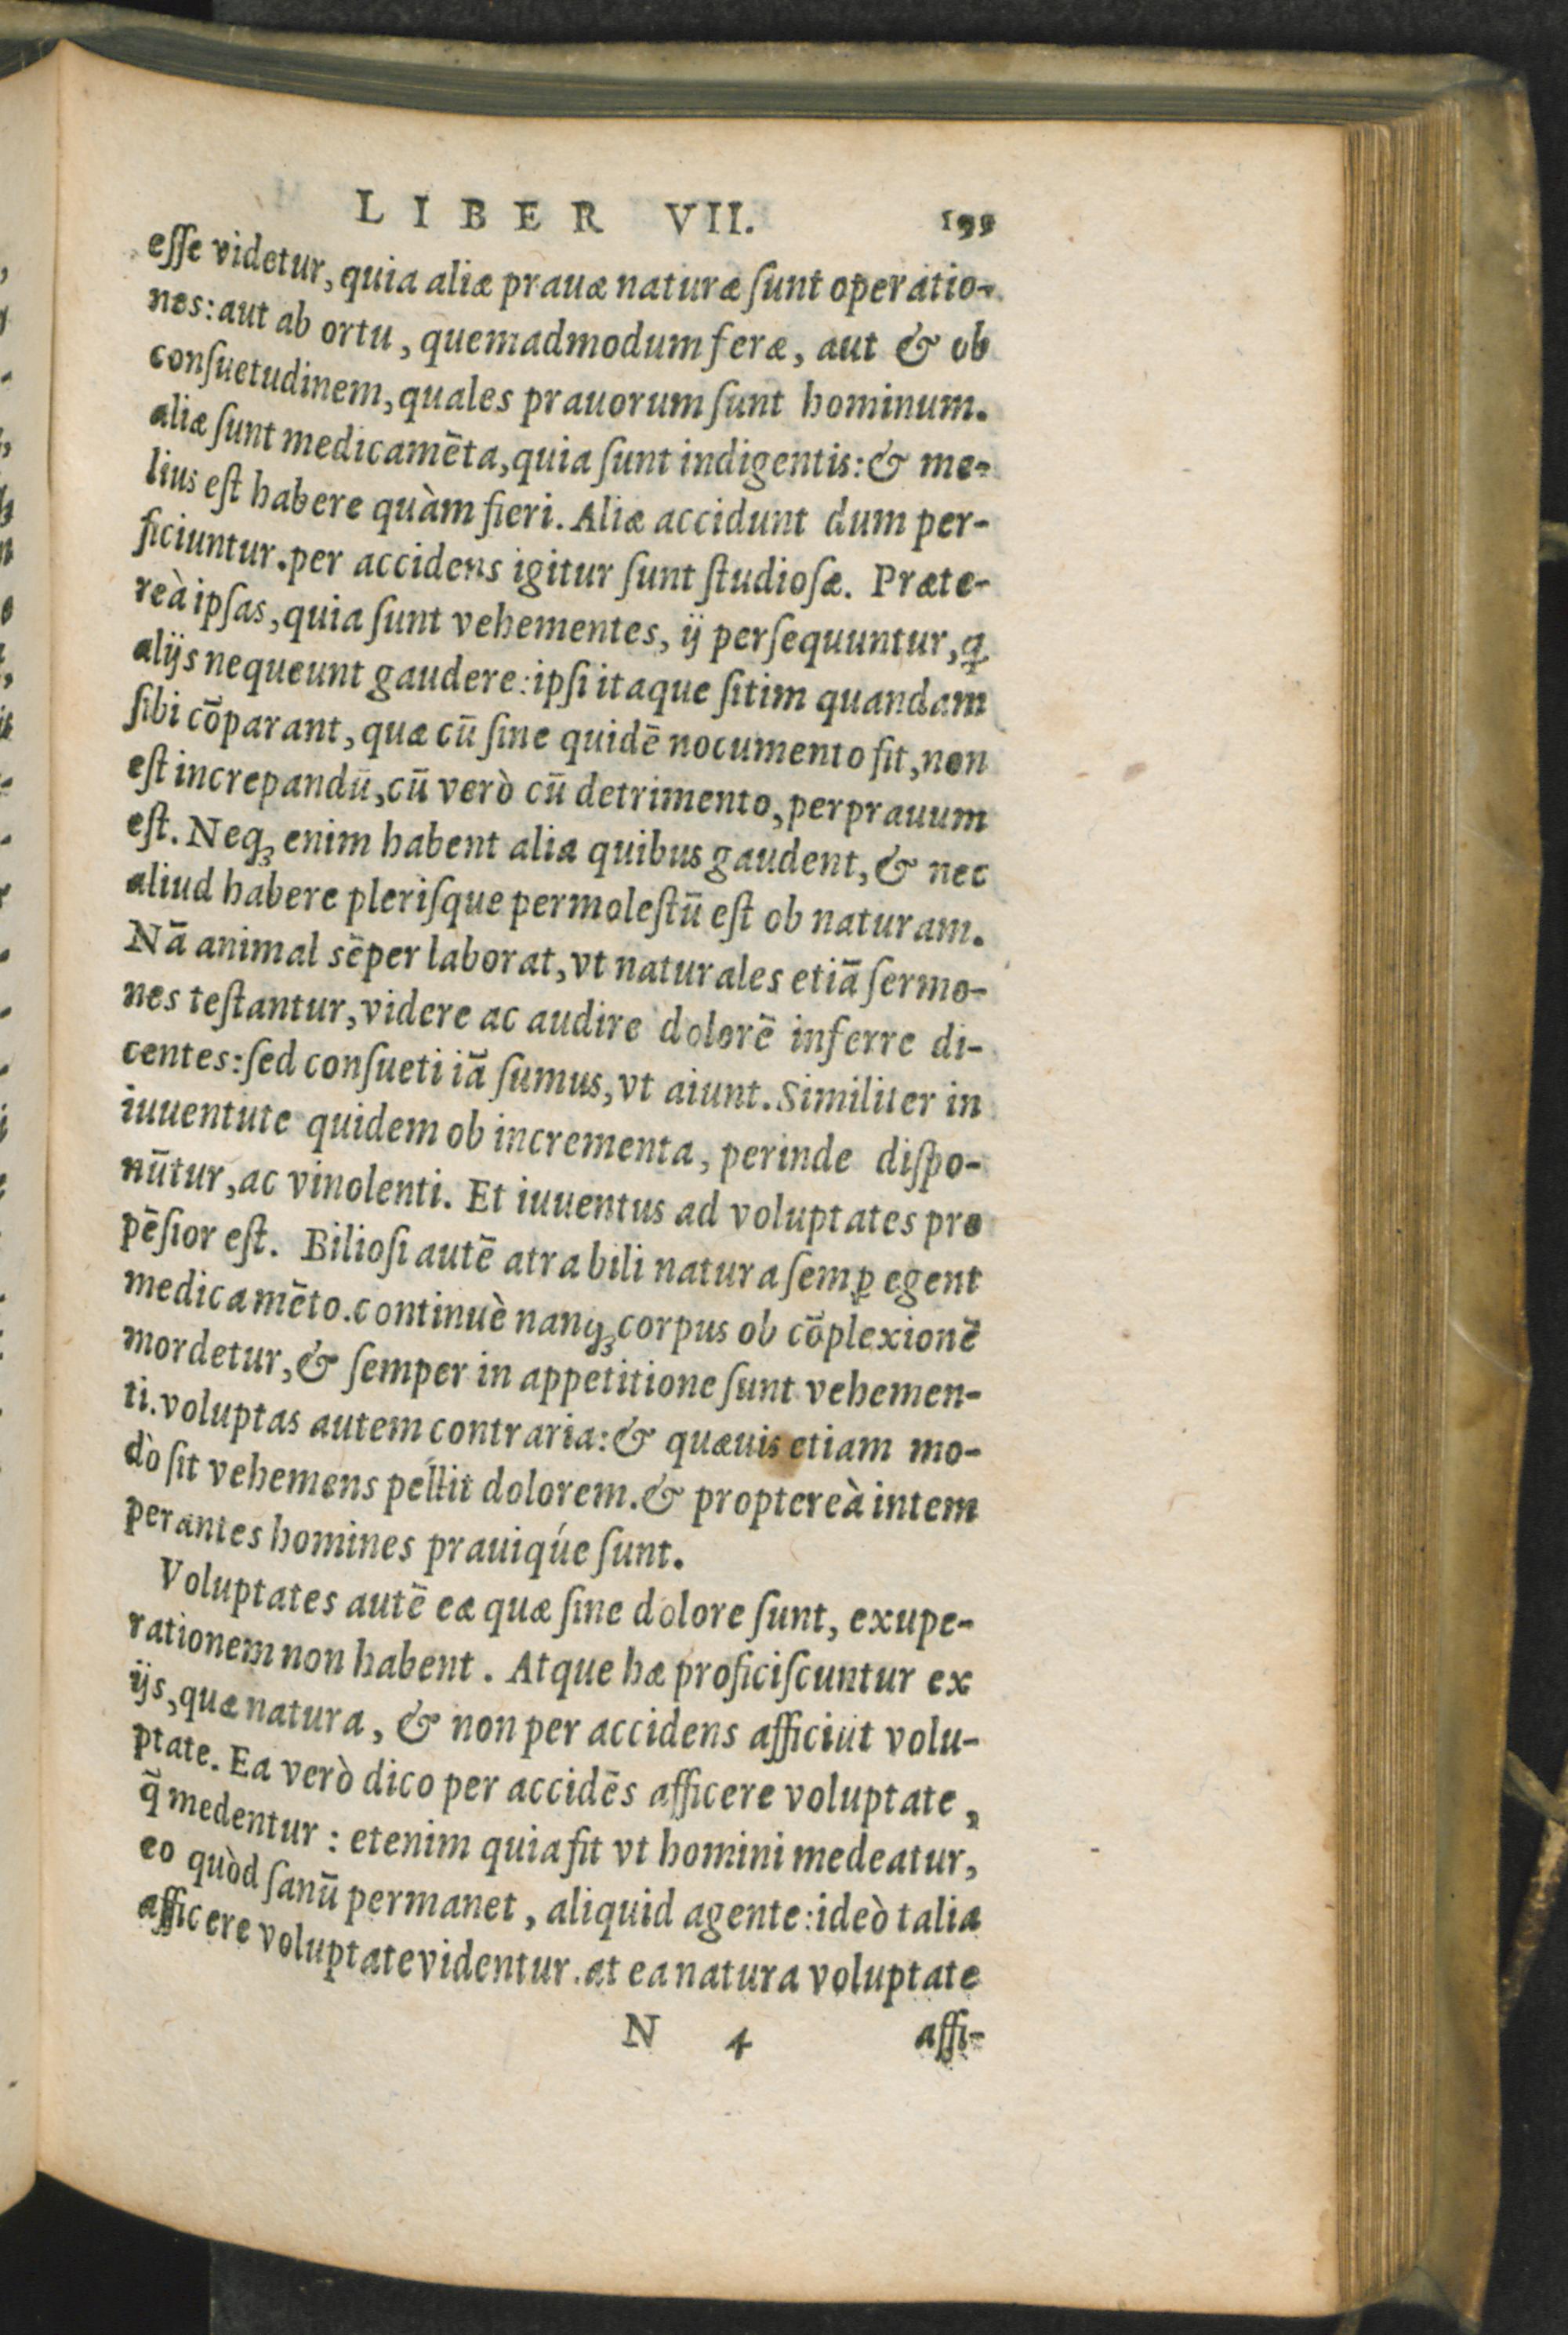 LIBER VII. 199
esse videtur, quia aliæ prauæ naturæ sunt operatio-
nes: aut ab ortu, quemadmodum feræ, aut & ob
consuetudinem, quales prauorum sunt hominum.
aliæ sunt medicamēta, quia sunt indigentis: & me-
lius est habere quàm fieri. Aliæ accidunt dum per-
ficiuntur. per accidens igitur sunt studiosæ. Præte-
reà ipsas, quia sunt vehementes, ij persequuntur, q̃
alijs nequeunt gaudere: ipsi itaque sitim quandam
sibi cōparant, quæ cū sine quidē nocumento sit, non
est increpandū, cū verò cū detrimento, perprauum
est. Neq; enim habent alia quibus gaudent, & nec
aliud habere plerisque permolestū est ob naturam.
Nā animal sēper laborat, vt naturales etiā sermo-
nes testantur, videre ac audire dolorē inferre di-
centes: sed consueti iā sumus, vt aiunt. Similiter in
iuuentute quidem ob incrementa, perinde dispo-
nūtur, ac vinolenti. Et iuuentus ad voluptates pro
pēsior est. Biliosi autē atra bili natura semꝑ egent
medicamēto. continuè nanq; corpus ob cōplexionē
mordetur, & semper in appetitione sunt vehemen-
ti. voluptas autem contraria: & quæuis etiam mo-
dò sit vehemens pellit dolorem. & proptereà intem
perantes homines prauiqúe sunt.
Voluptates autē eæ quæ sine dolore sunt, exupe-
rationem non habent. Atque hæ proficiscuntur ex
ijs, quæ natura, & non per accidens afficiūt volu-
ptate. Ea verò dico per accidēs afficere voluptate,
q̄ medentur: etenim quia fit vt homini medeatur,
eo quòd sanū permanet, aliquid agente: ideò talia
afficere voluptate videntur. at ea natura voluptate
N 4 affi-